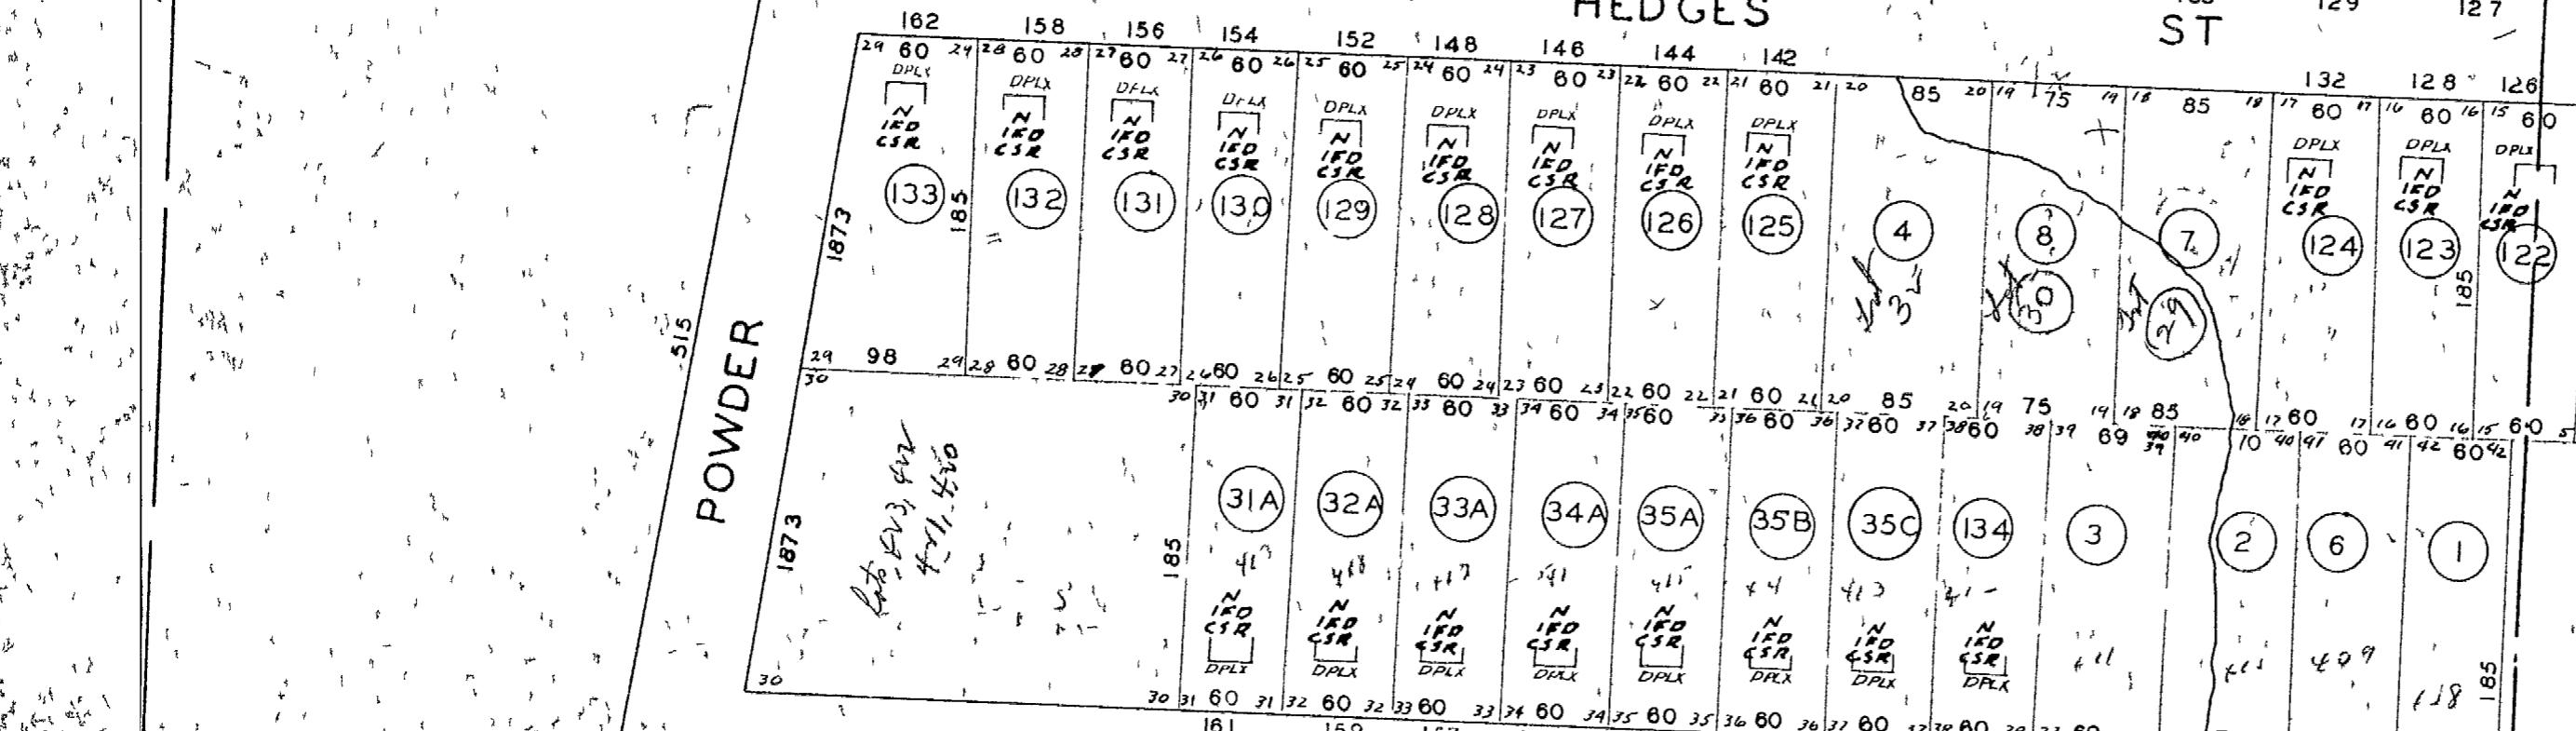 HEDGES ST
129 127
162 158 156 154 152 148 146 144 142 132 128 126
29 60 29 28 60 28 27 60 27 26 60 26 25 60 25 24 60 24 23 60 23 22 60 22 21 60 21 20 85 20 19 75 19 18 85 18 17 60 17 16 60 16 15 60
DPLX DPLX DPLX DPLX DPLX DPLX DPLX DPLX DPLX DPLX DPLX DPLX
N N N N N N N N N N N N
IFD IFD IFD IFD IFD IFD IFD IFD IFD IFD IFD IFD
CSR CSR CSR CSR CSR CSR CSR CSR CSR CSR CSR CSR
133 132 131 130 129 128 127 126 125 4 8 7 124 123 122
1873 185 185
30 29
515
POWDER
29 98 29 28 60 28 27 60 27 26 60 26 25 60 25 24 60 24 23 60 23 22 60 22 21 60 21 20 85 20 19 75 19 18 85 18 17 60 17 16 60 16 15 60
30 30 31 60 31 32 60 32 33 60 33 34 60 34 35 60 35 36 60 36 37 60 37 38 60 38 39 69 39 40 10 40 41 60 41 42 60 42
31A 32A 33A 34A 35A 35B 35C 134 3 2 6 1
1873 185 185
413 409
N N N N N N N N
IFD IFD IFD IFD IFD IFD IFD IFD
CSR CSR CSR CSR CSR CSR CSR CSR
DPLX DPLX DPLX DPLX DPLX DPLX DPLX DPLX
30 30 31 60 31 32 60 32 33 60 33 34 60 34 35 60 35 36 60 36 37 60 37 38 60
161